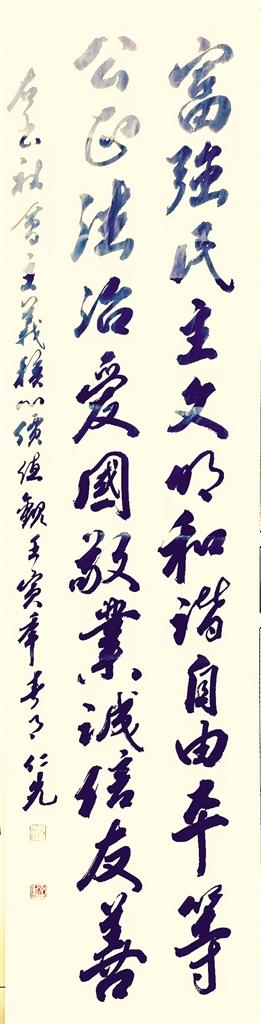 富強民主文明和谐自由平等
公正法治愛國敬業誠信友善
右书社會主義核心價值觀壬寅年春月仁光